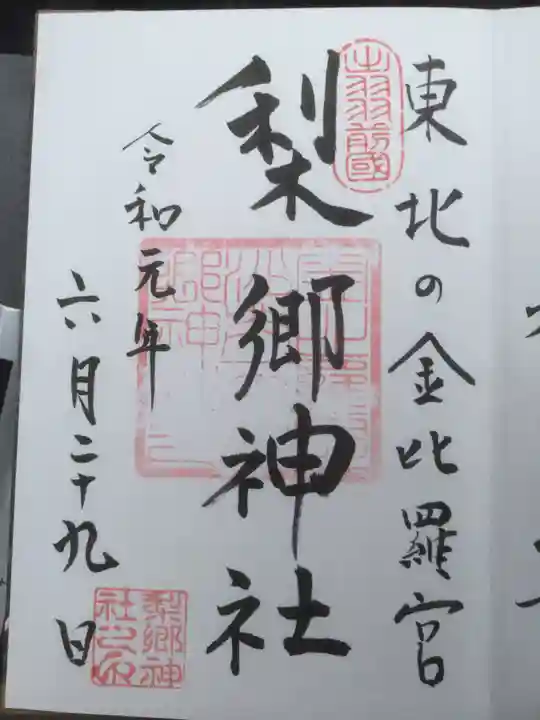 東北の金比羅宮
出羽前國
梨郷神社
令和元年
六月二十九日
梨郷神
社之印